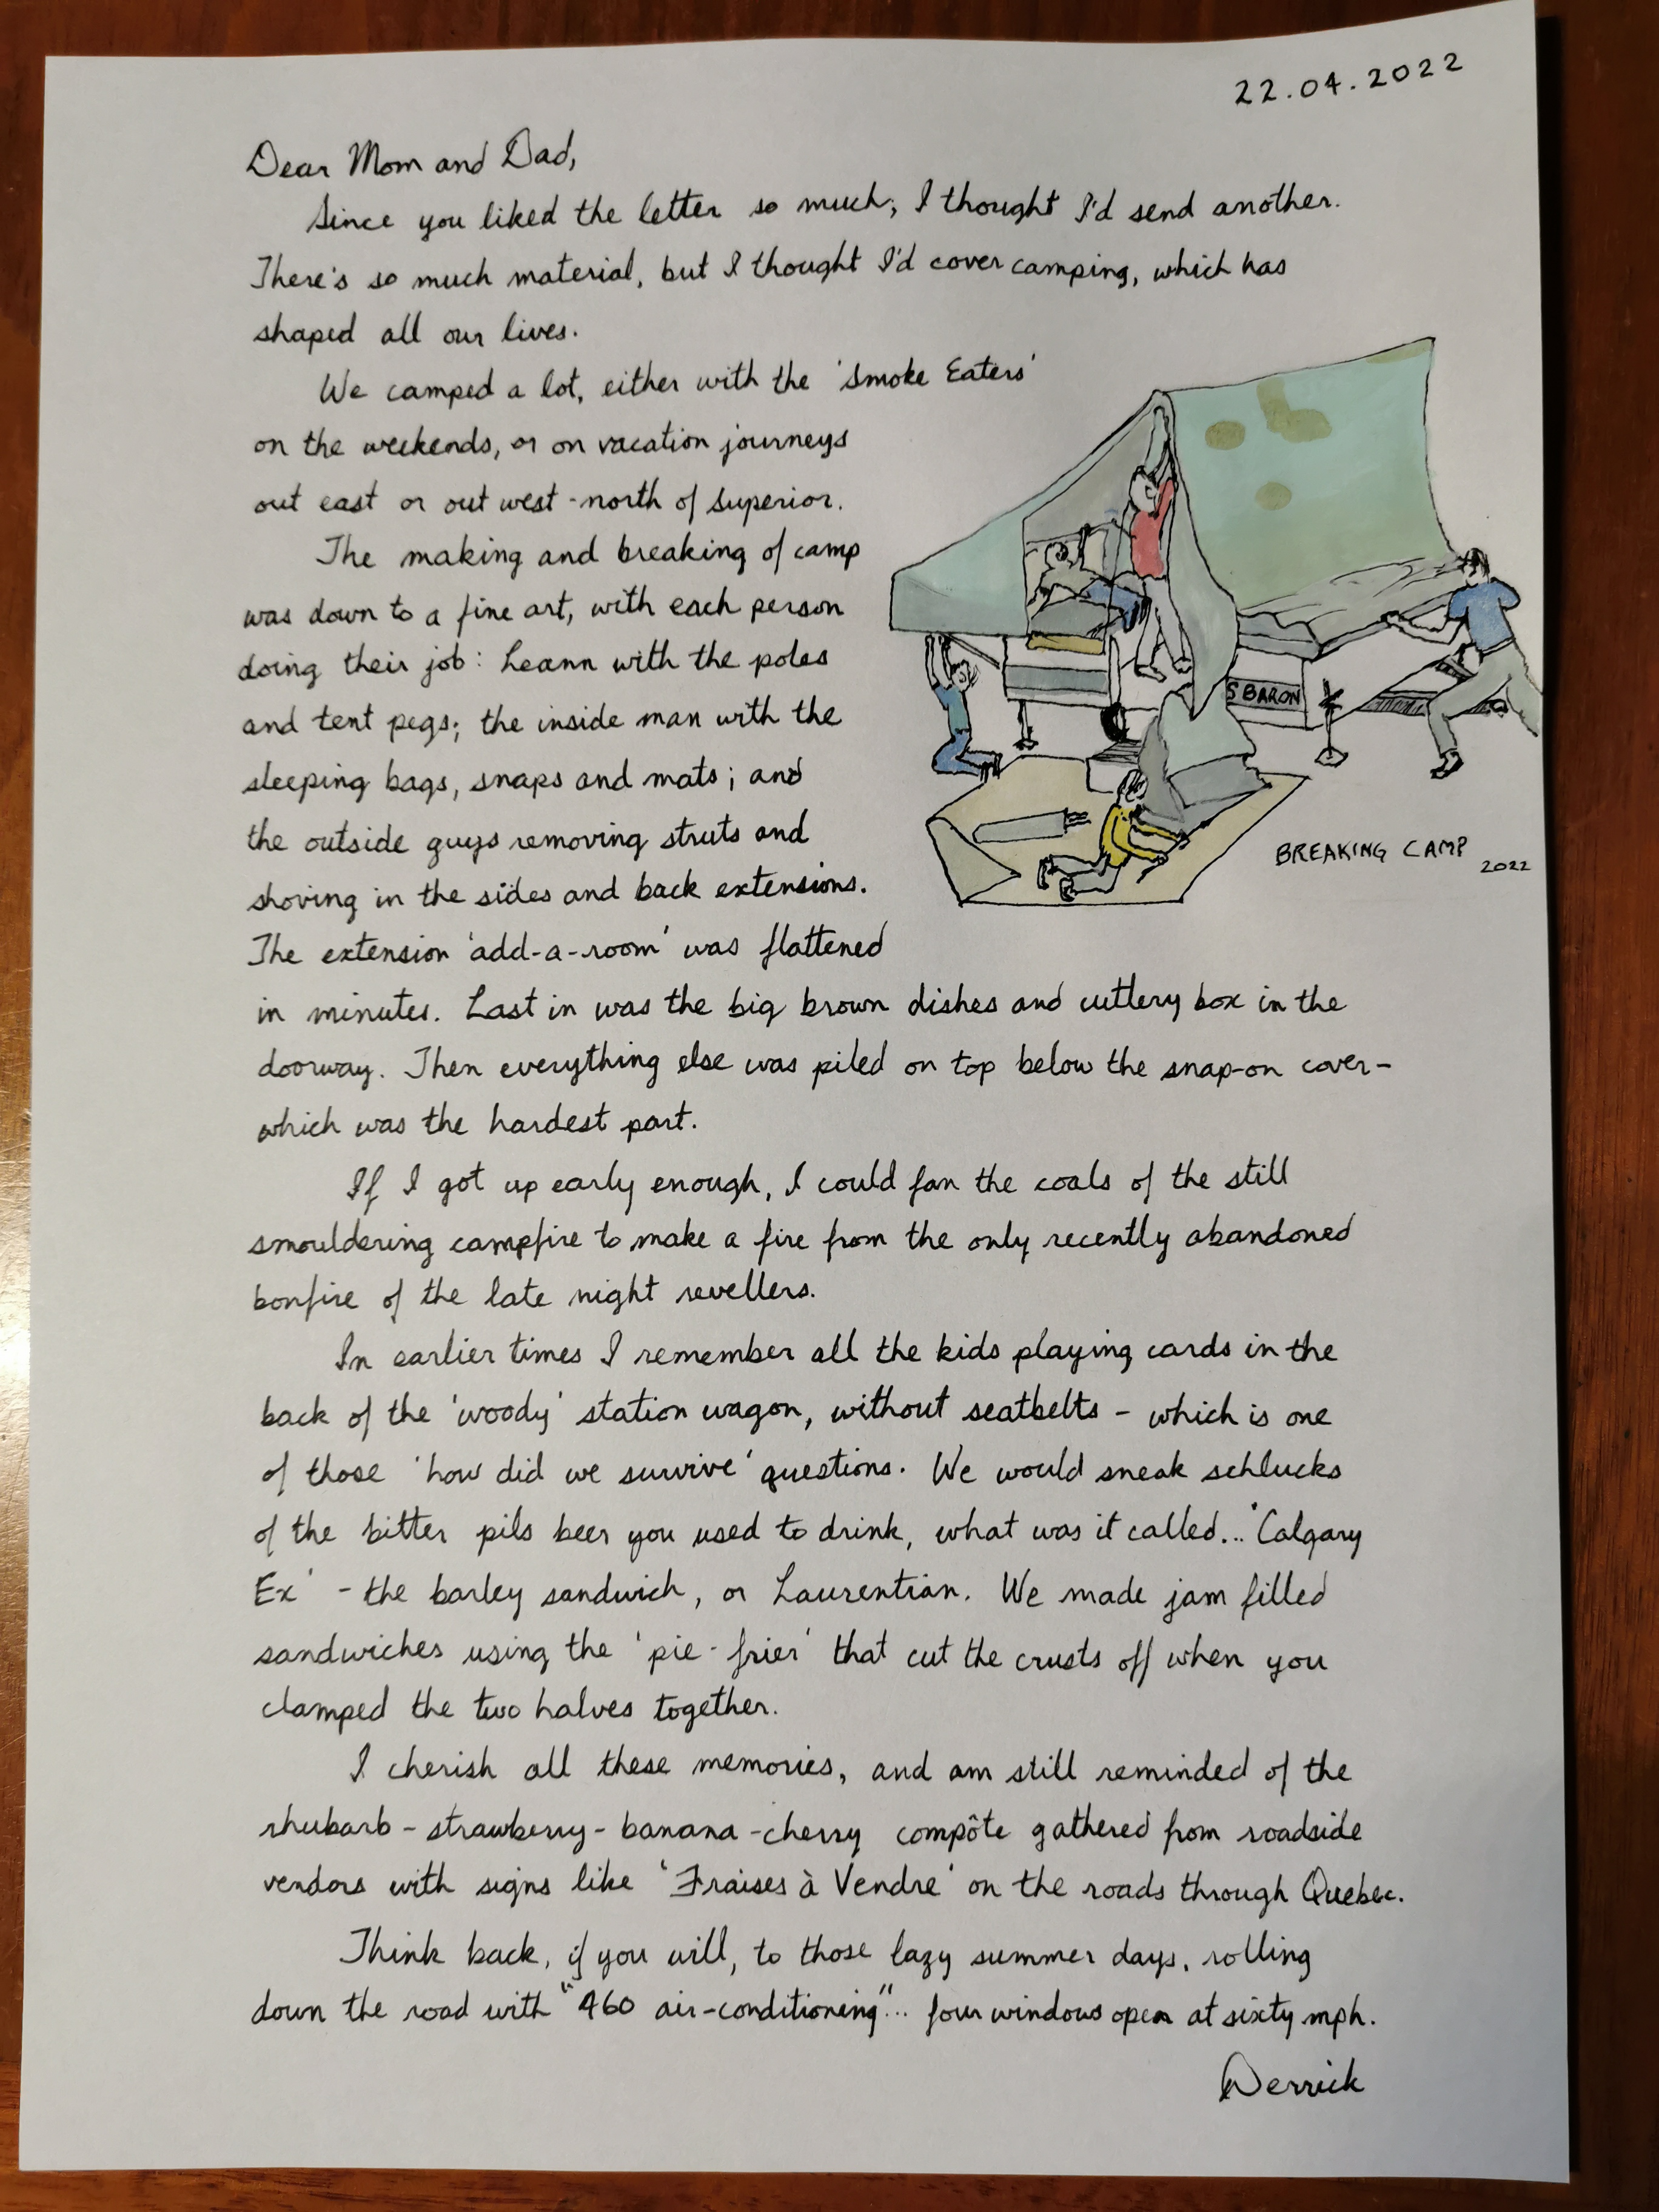 22.04.2022
Dear Mom and Dad,
Since you liked the letter so much, I thought I'd send another.
There's so much material, but I thought I'd cover camping, which has
shaped all our lives.
We camped a lot, either with the 'Smoke Eaters'
on the weekends, or on vacation journeys
out east or out west - north of Superior.
The making and breaking of camp
was down to a fine art, with each person
doing their job: Leann with the poles
and tent pegs; the inside man with the
sleeping bags, snaps and mats; and
the outside guys removing struts and
shoving in the sides and back extensions.
The extension 'add-a-room' was flattened
in minutes. Last in was the big brown dishes and cutlery box in the
doorway. Then everything else was piled on top below the snap-on cover-
which was the hardest part.
If I got up early enough, I could fan the coals of the still
smouldering campfire to make a fire from the only recently abandoned
bonfire of the late night revellers.
In earlier times I remember all the kids playing cards in the
back of the 'woody' station wagon, without seatbelts - which is one
of those 'how did we survive' questions. We would sneak schlucks
of the bitter pils beer you used to drink, what was it called... 'Calgary
Ex' - the barley sandwich, or Laurentian. We made jam filled
sandwiches using the 'pie-frier' that cut the crusts off when you
clamped the two halves together.
I cherish all these memories, and am still reminded of the
rhubarb-strawberry-banana-cherry compôte gathered from roadside
vendors with signs like 'Fraises à Vendre' on the roads through Quebec.
Think back, if you will, to those lazy summer days, rolling
down the road with "460 air-conditioning"... four windows open at sixty mph.
Derrick
S BARON
BREAKING CAMP
2022